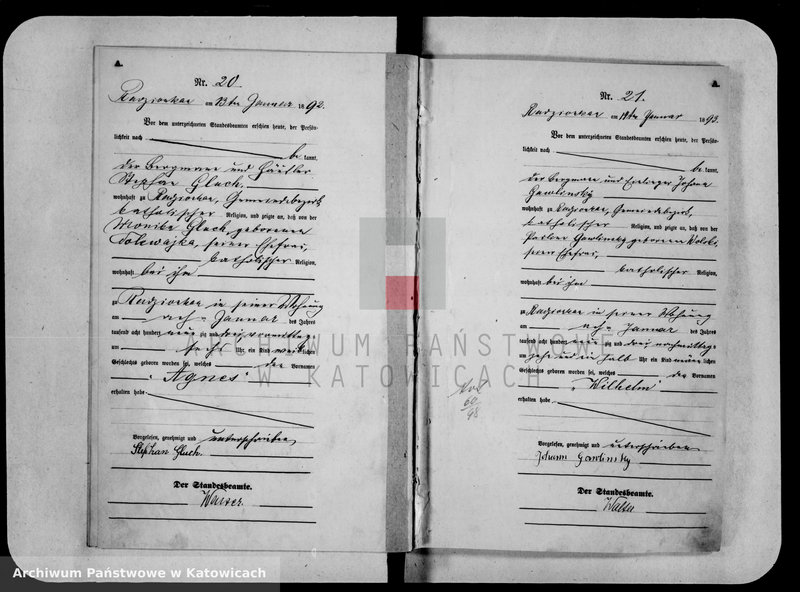 A.
Nr. 20
Radzionkau am 13ten Januar 1892.
Vor dem unterzeichneten Standesbeamten erschien heute, der Persön-
lichkeit nach
be kannt,
der Bergmann und Häusler
Stephan Gluch,
wohnhaft zu Radzionkau, Gemeindebezirk
katholischer Religion, und zeigte an, daß von der
Monika Gluch, geborenen
seiner Ehefrau,
katholischer Religion,
wohnhaft bei ihm
zu Radzionkau in seiner Wohnung
am acht Januar des Jahres
tausend acht hundert neun zig und drei, vormittags
um sechs Uhr ein Kind weiblichen
Geschlechts geboren worden sei, welches den Vornamen
Agnes
erhalten habe.
Vorgelesen, genehmigt und unterschrieben
Stephan Gluch.
Der Standesbeamte.
A.
Nr. 21.
Radzionkau am Januar 1893.
Vor dem unterzeichneten Standesbeamten erschien heute, der Persön-
lichkeit nach
be kannt,
der Bergmann und Einlieger Johann
Gawlinsky
wohnhaft zu Radzionkau, Gemeindebezirk,
katholischer Religion, und zeigte an, daß von der
Gawlinsky geborenen
seiner Ehefrau,
katholischer Religion,
wohnhaft bei ihm
zu Radzionkau in seiner Wohnung
am acht Januar des Jahres
tausend acht hundert neun zig und drei nachmittags
um halb Uhr ein Kind männlichen
Geschlechts geboren worden sei, welches den Vornamen
Wilhelm
erhalten habe.
60
98
Vorgelesen, genehmigt und unterschrieben
Johann Gawlinsky
Der Standesbeamte.
ARCHIWUM PAŃSTWOWE
W KATOWICACH
Archiwum Państwowe w Katowicach